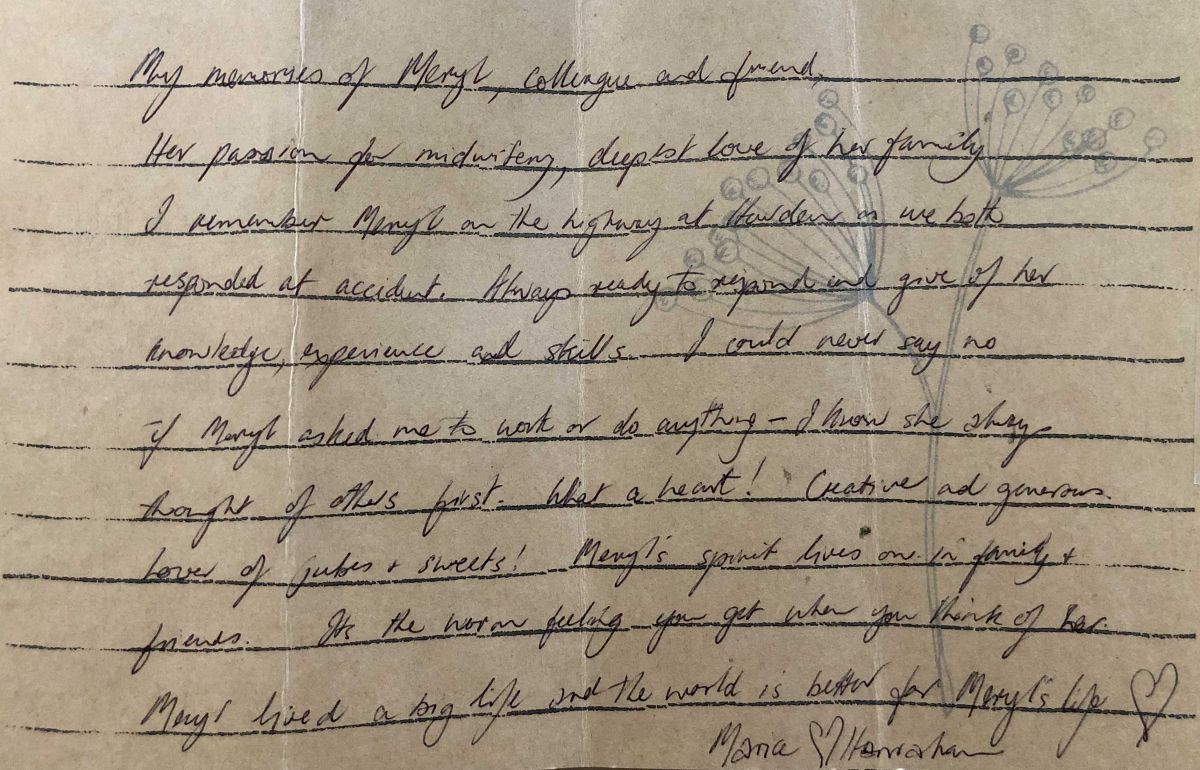 My memories of Meryl, colleague and friend.
Her passion for midwifery, deepest love of her family
I remember Meryl on the highway at Howden as we both
responded at accident. Always ready to respond and give of her
knowledge, experience and skills I could never say no
if Meryl asked me to work or do anything - I know she always
thought of others first. What a heart! Creative and generous.
Lover of jubes + sweets! Meryl's spirit lives on in family +
friends. Its the warm feeling you get when you think of her.
Meryl lived a big life and the world is better for Meryl's life ♡
Maria ♡ Hanrahan